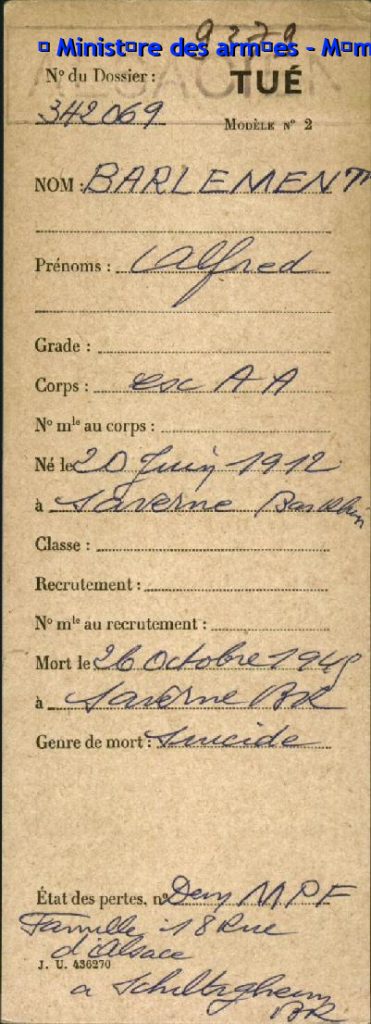 9379
¤ Minist¤re des arm¤es - M¤m
ALSACIEN
N° du Dossier :
342069
TUÉ
MODÈLE N° 2
NOM : BARLEMENT
Prénoms : Alfred
Grade :
Corps : esc A A
N° mle au corps :
Né le 20 Juin 1912
à Saverne Bas Rhin
Classe :
Recrutement :
N° mle au recrutement :
Mort le 26 Octobre 1945
à Saverne BR
Genre de mort : Suicide
État des pertes, n° Dem MPF
Famille 18 Rue
d'Alsace
J. U. 436270
à Schiltigheim
BR